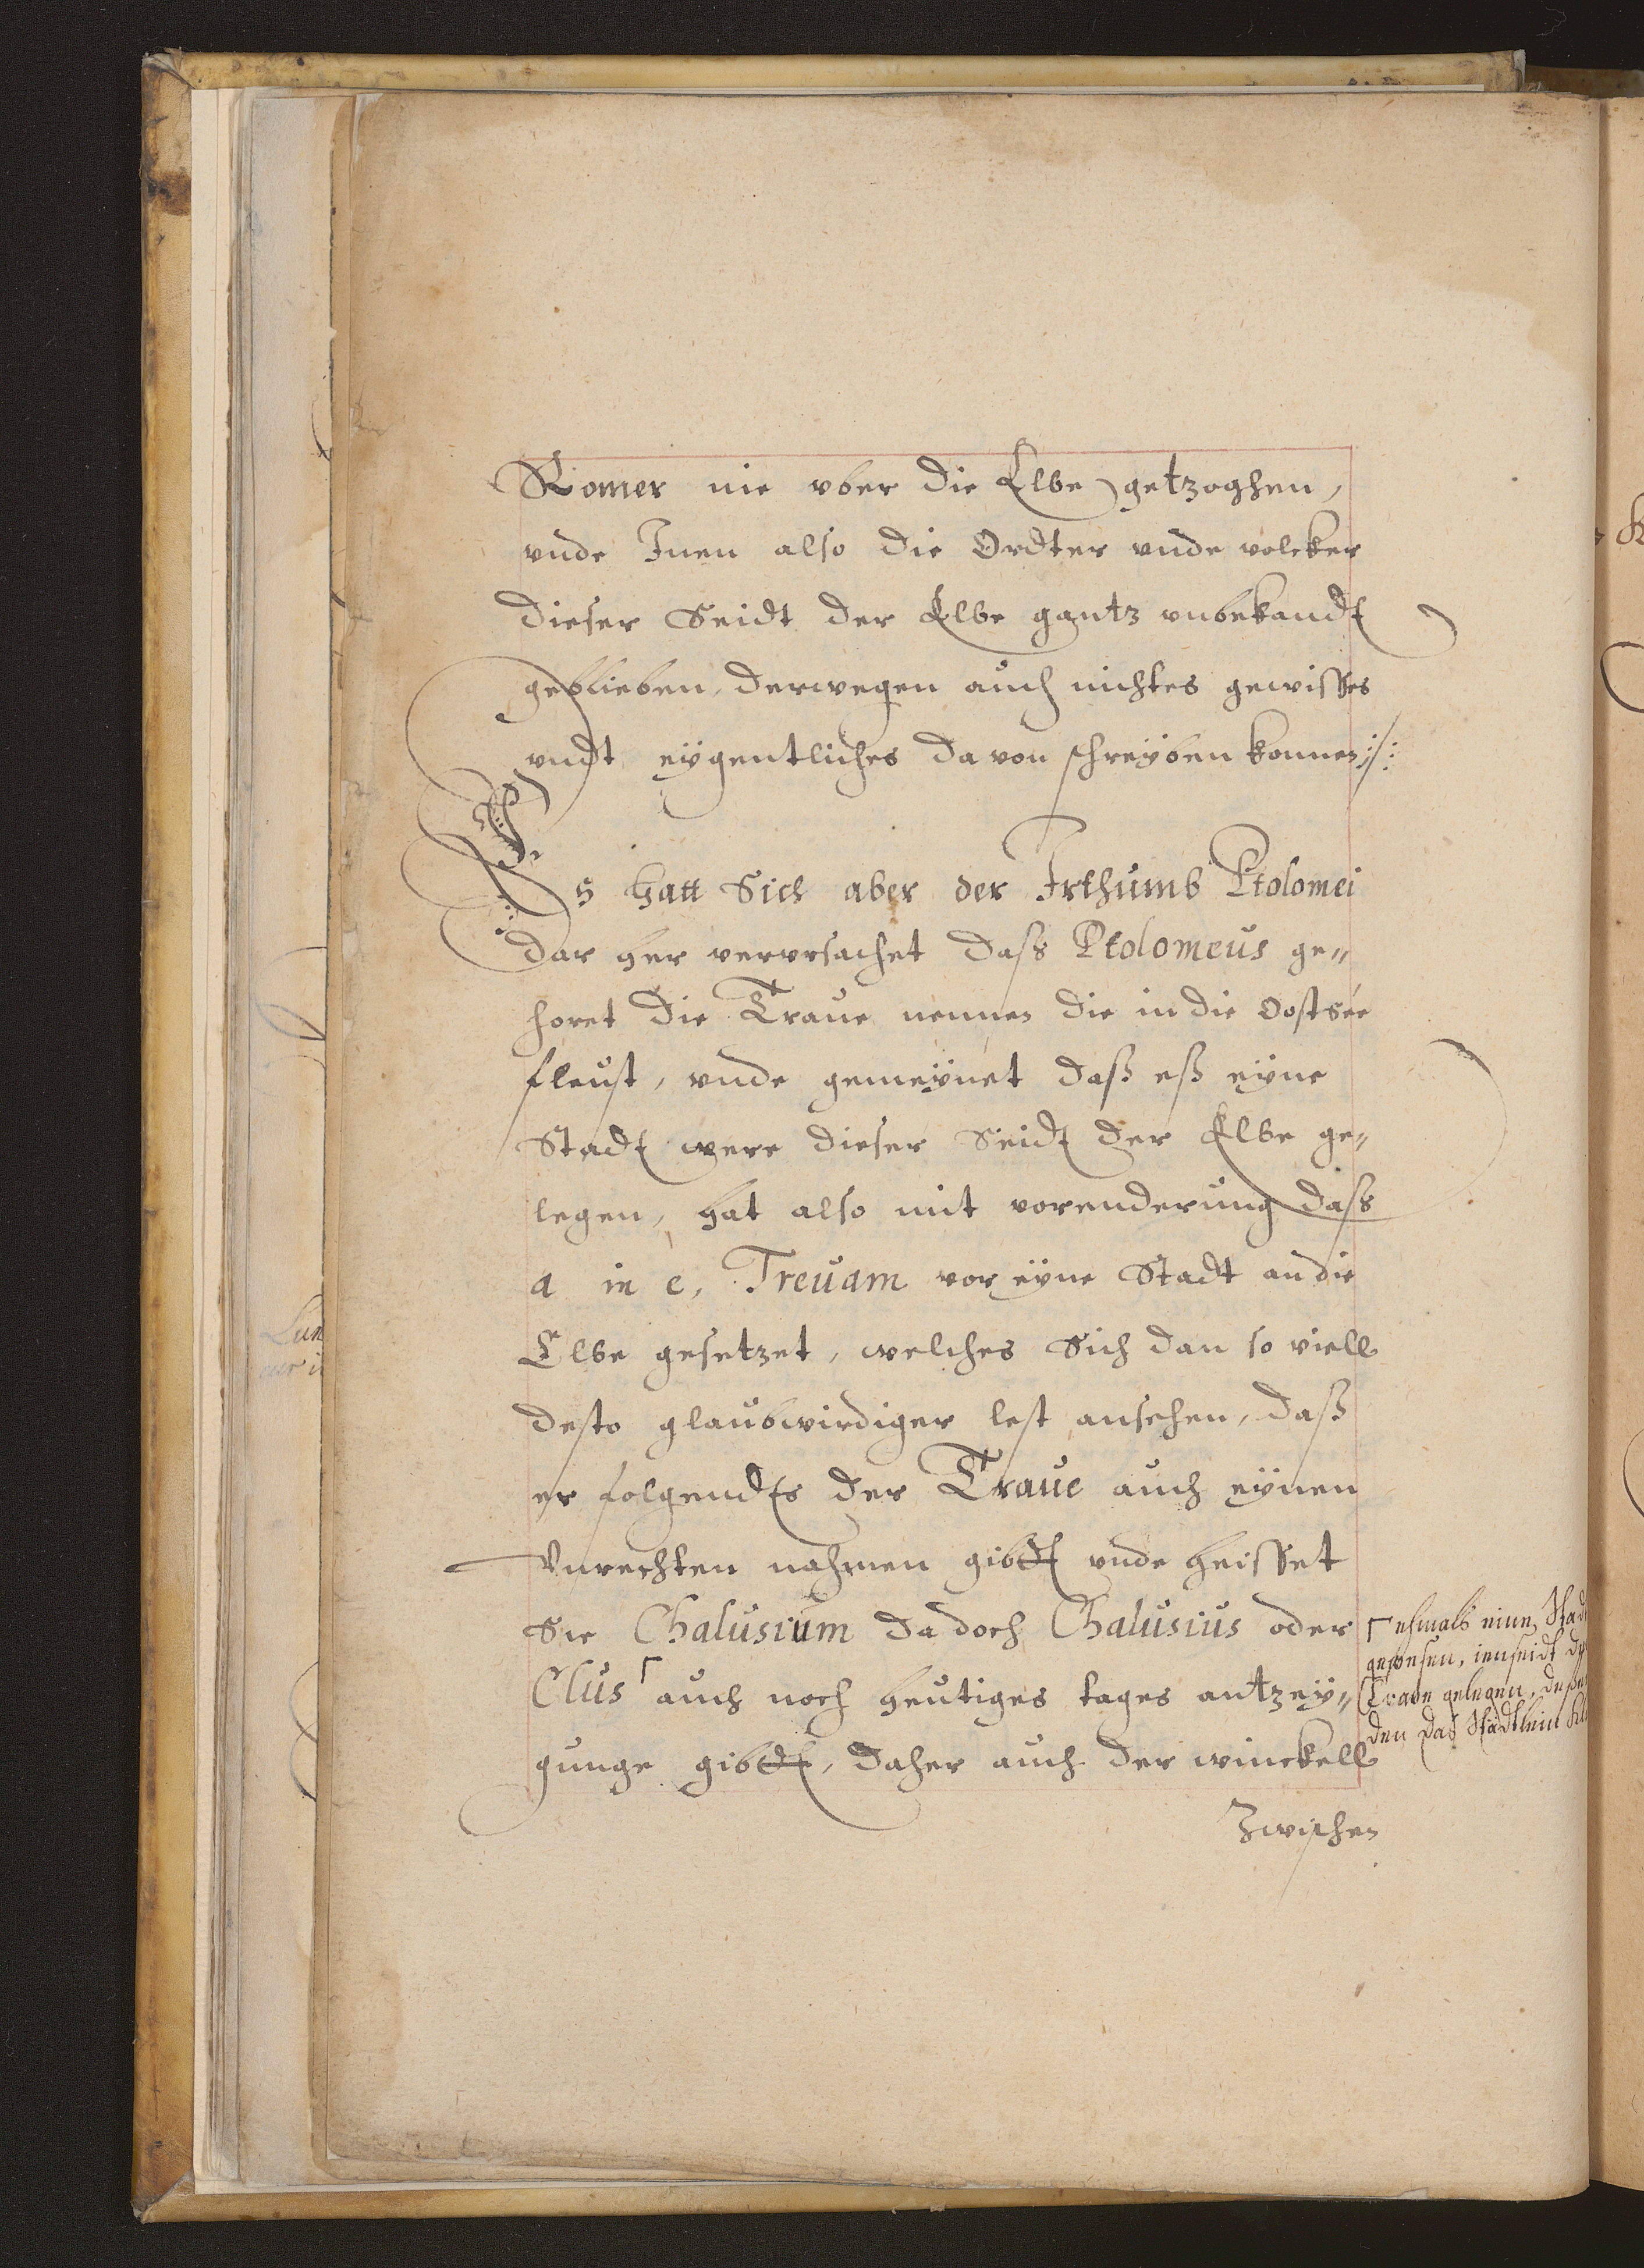 Romer nie vber die Elbe getzoghen,
vnde Inen also die Ordter vnde volcker
dieser Seidt der Elbe gantz vnbekandt
geblieben, derwegen auch nichtes gewisses
vndt eygentliches da von schreyben konnen :/:
Es hatt Sich aber der Irthumb Ptolomei
dar her vervrsachet dass Ptolomeus ge„
horet die Traue nennen die in die Oostsée
fleust, vnde gemeynet daß eß eyne
Stadt were dieser Seidt der Elbe ge„
legen, hat also mit vorenderung dass
a in e, Trevam vor eyne Stadt an die
Elbe gesetzet, welches Sich dan so viell
desto glaubwirdiger lest ansehen, daß
er folgendts der Traue auch eynen
Vnrechten nahmen gibdt vnde heisset
Sie Chalusium da doch Chalusius oder
Clus⌈ auch noch heutiges tages antzey„
gunge gibdt, daher auch der winckell
Zwischen
⌈ ehmals eine Stad
gewesen, ienseidt d
Trave gelegen, deße
den das Städtlein
Lun